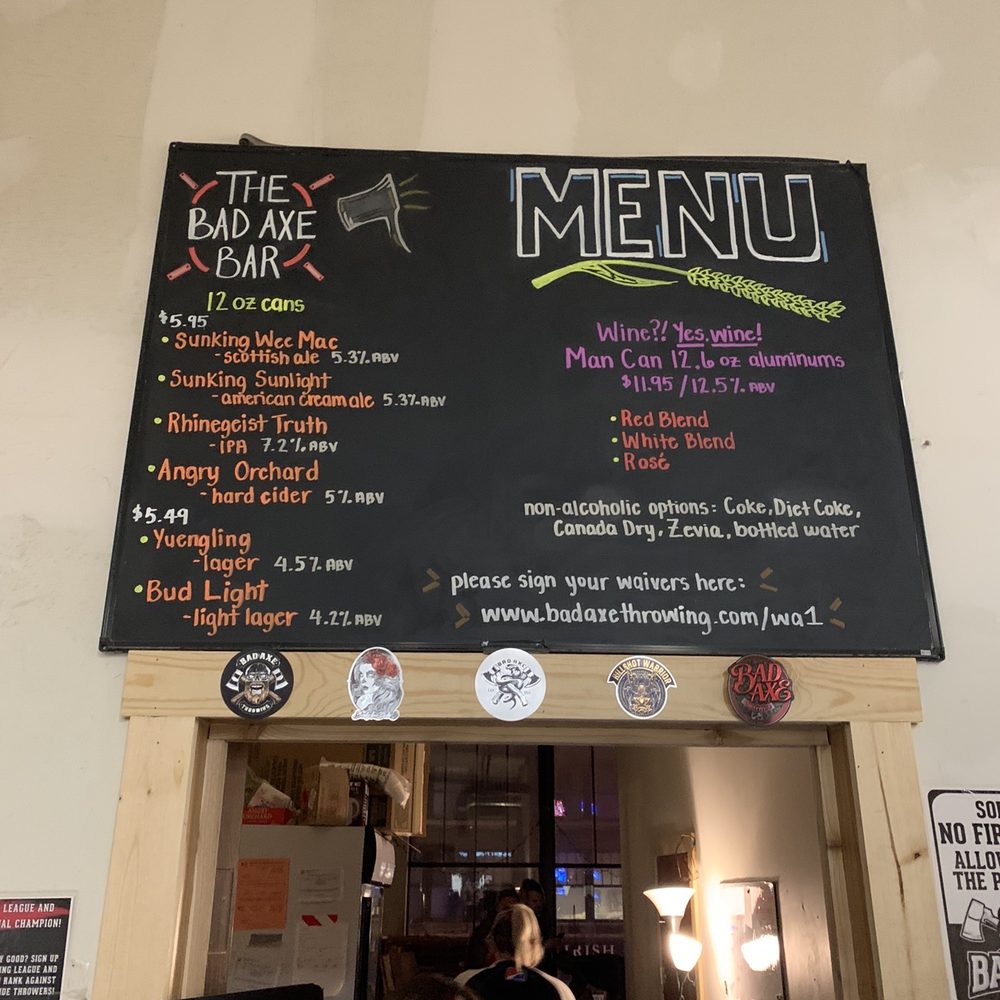 THE
BAD AXE
BAR
12 oz cans
$5.95
• Sunking Wee Mac
- scottish ale 5.3% ABV
• Sunking Sunlight
- american cream ale 5.3% ABV
• Rhinegeist Truth
- IPA 7.2% ABV
• Angry Orchard
- hard cider 5% ABV
$5.49
• Yuengling
- lager 4.5% ABV
• Bud Light
- light lager 4.2% ABV
MENU
Wine?! Yes, wine!
Man Can 12.6 oz aluminums
$11.95 / 12.5% ABV
• Red Blend
• White Blend
• Rosé
non-alcoholic options: Coke, Diet Coke,
Canada Dry, Zevia, bottled water
please sign your waivers here:
www.badaxethrowing.com/wa1
BAD AXE
THROWING
BAD AXE
KILLSHOT WARRIOR
BAD
AXE
NO FIR
ALLO
THE P
BA
LEAGUE AND
AL CHAMPION!
GOOD? SIGN UP
NG LEAGUE AND
RANK AGAINST
DE THROWERS!
RISH